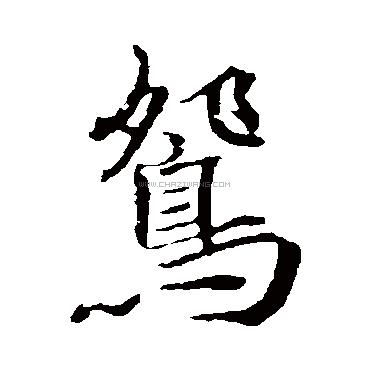 鴛
WWW.CHAZIWANG.COM